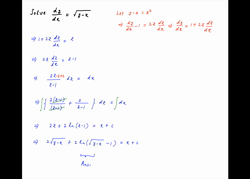 Solve dy/dx = √(y-x)
Let y-x = z²
⇒ dy/dx - 1 = 2z dz/dx ⇒ dy/dx = 1+2z dz/dx
⇒ 1+2z dz/dx = z
⇒ 2z dz/dx = z-1
dz = dx
dz = ∫dx
⇒ 2z + 2 ln(z-1) = x + c
⇒ 2√(y-x) + 2 ln(√(y-x) -1) = x + c
Ans.